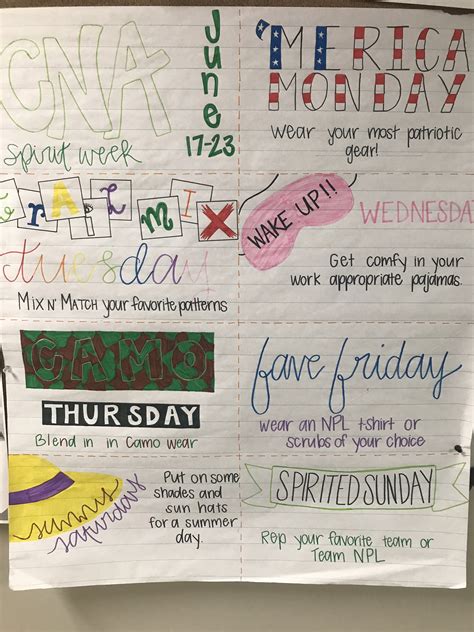 CNA
spirit week
June
17-23
'MERICA
MONDAY
Wear your most patriotic
gear!
MiX
tuesday
Mix n' Match your favorite patterns
WAKE UP!!
WEDNESDAY
Get comfy in your
work appropriate pajamas.
CAMO
THURSDAY
Blend in in Camo wear
fave friday
wear an NPL t-shirt or
scrubs of your choice
sunny
saturday
Put on some
shades and
sun hats
for a summer
day.
SPIRITED SUNDAY
Rep your favorite team or
Team NPL